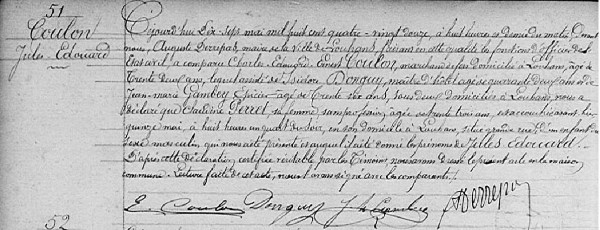 51
Coulon
Jules Edouard
Cejourd'hui dix-sept mai mil huit cent quatre-vingt douze, à huit heures et demie du matin Devant
nous, Auguste Derrepas, maire de la ville de Louhans, faisant en cette qualité les fonctions d'officier de
l'état civil, a comparu Charles Edouard Coulon, marchand domicilié à Louhans, âgé de
trente deux ans, lequel assisté de Isidore Donguy, maître d'hôtel âgé de quarante deux ans et de
Jean-Marie Cambey, Epicier âgé de trente six ans, tous deux domiciliés à Louhans, nous a
déclaré que Perret sa femme, sans profession, âgée de trente trois ans, est accouchée avant hier
quinze mai, à huit heures un quart du soir, en son domicile à Louhans, sis grande rue, d'un enfant du
sexe masculin, qu'il nous a présenté et auquel il a été donné les prénoms de Jules Edouard.
D'après cette déclaration, certifiée véritable par les témoins, nous avons dressé le présent acte en la maison
commune. Lecture faite de cet acte, nous l'avons signé avec les comparants.
E. Coulon Donguy J M Cambey Derrepas
52